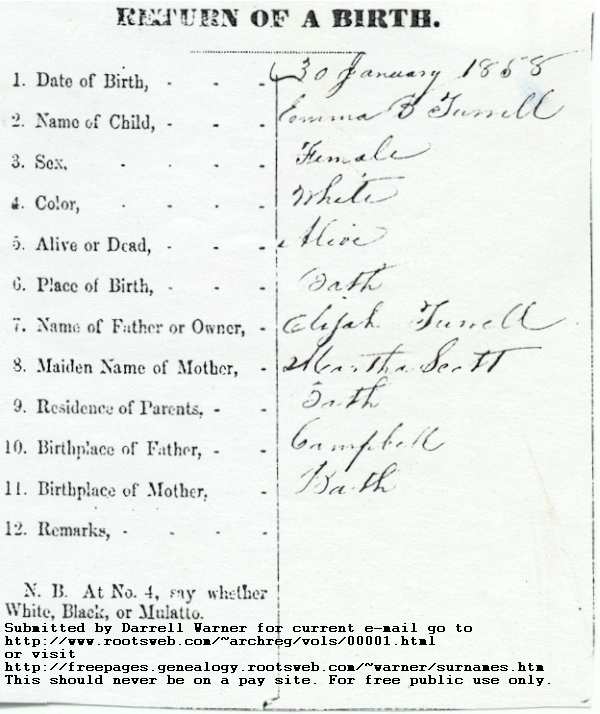 RETURN OF A BIRTH.
1. Date of Birth, - - - 30 January 1858
2. Name of Child, - - - Emma B Turrell
3. Sex, - - - - Female
4. Color, - - - - White
5. Alive or Dead, - - - Alive
6. Place of Birth, - - - Bath
7. Name of Father or Owner, - Elijah Turrell
8. Maiden Name of Mother, - Martha Scott
9. Residence of Parents, - - Bath
10. Birthplace of Father, - - Campbell
11. Birthplace of Mother, - Bath
12. Remarks, - - - -
N. B. At No. 4, say whether
White, Black, or Mulatto.
Submitted by Darrell Warner for current e-mail go to
http://www.rootsweb.com/~archreg/vols/00001.html
or visit
http://freepages.genealogy.rootsweb.com/~warner/surnames.htm
This should never be on a pay site. For free public use only.